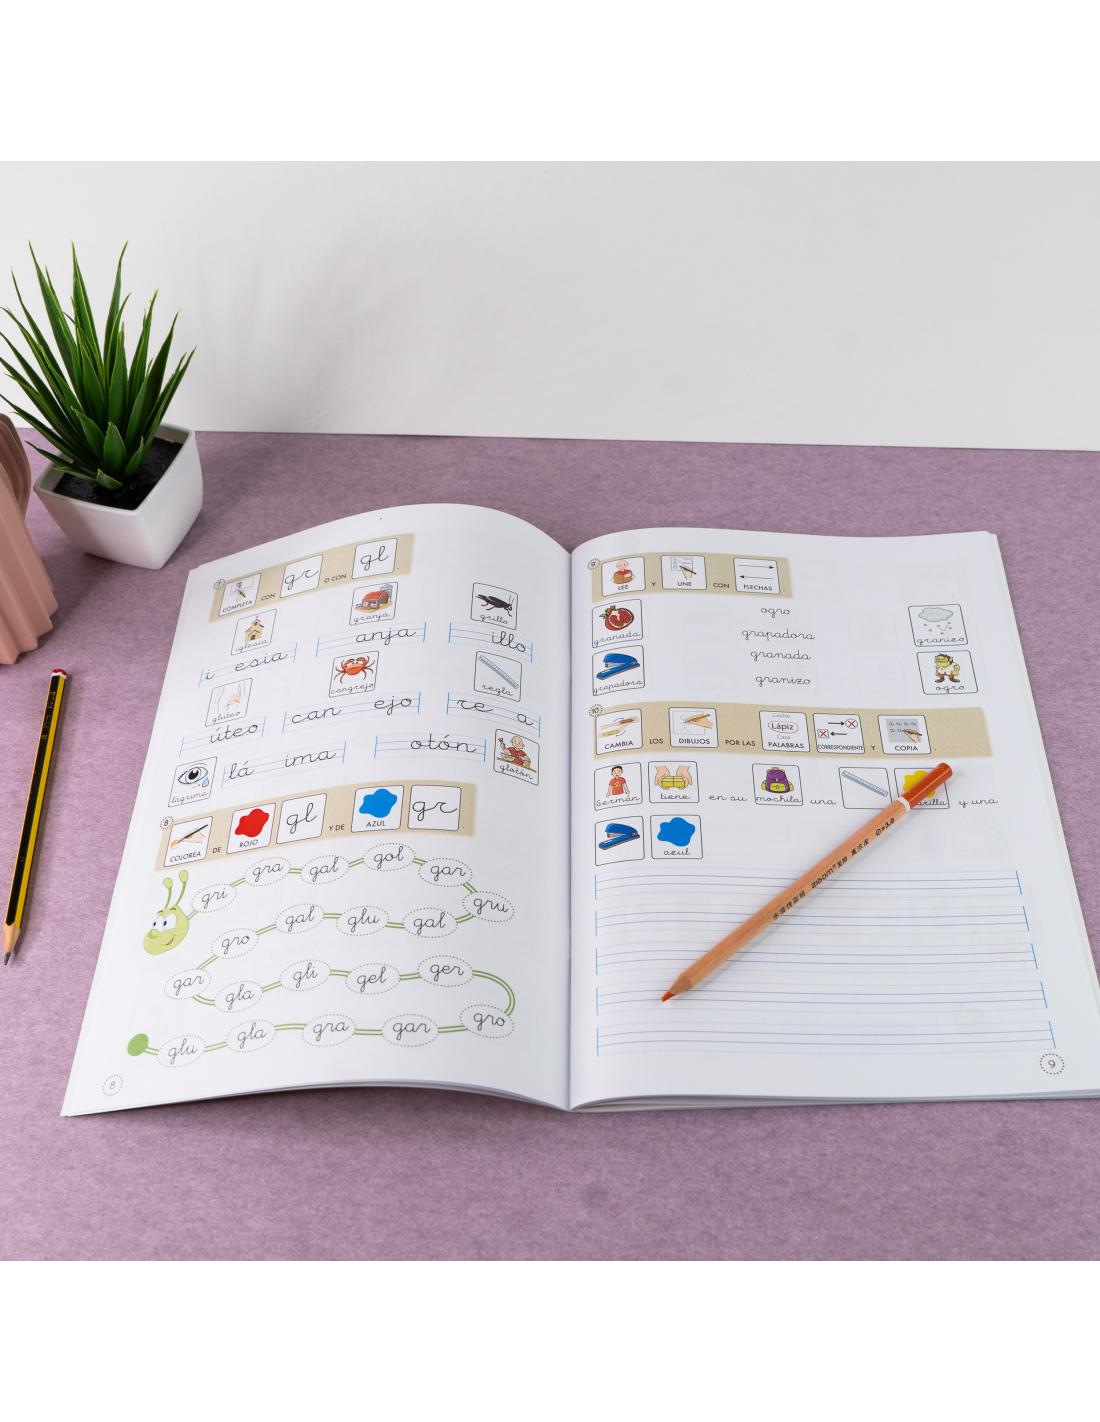 7
COMPLETA CON gr O CON gl
iglesia granja grillo
i esia anja illo
glúteo cangrejo regla
úteo can ejo re a
lágrima lá ima otón glotón
8
COLOREA DE ROJO gl Y DE AZUL gr
gri gra gal gol gar gru
gro gal glu gal
gar gla gli gel ger
glu gla gra gar gro
8
9
LEE Y UNE CON FLECHAS
granada ogro granizo
grapadora
grapadora granada ogro
granizo
10
CAMBIA LOS DIBUJOS POR LAS Coche Lápiz Casa PALABRAS CORRESPONDIENTE Y COPIA.
Germán tiene en su mochila una y una
azul
9